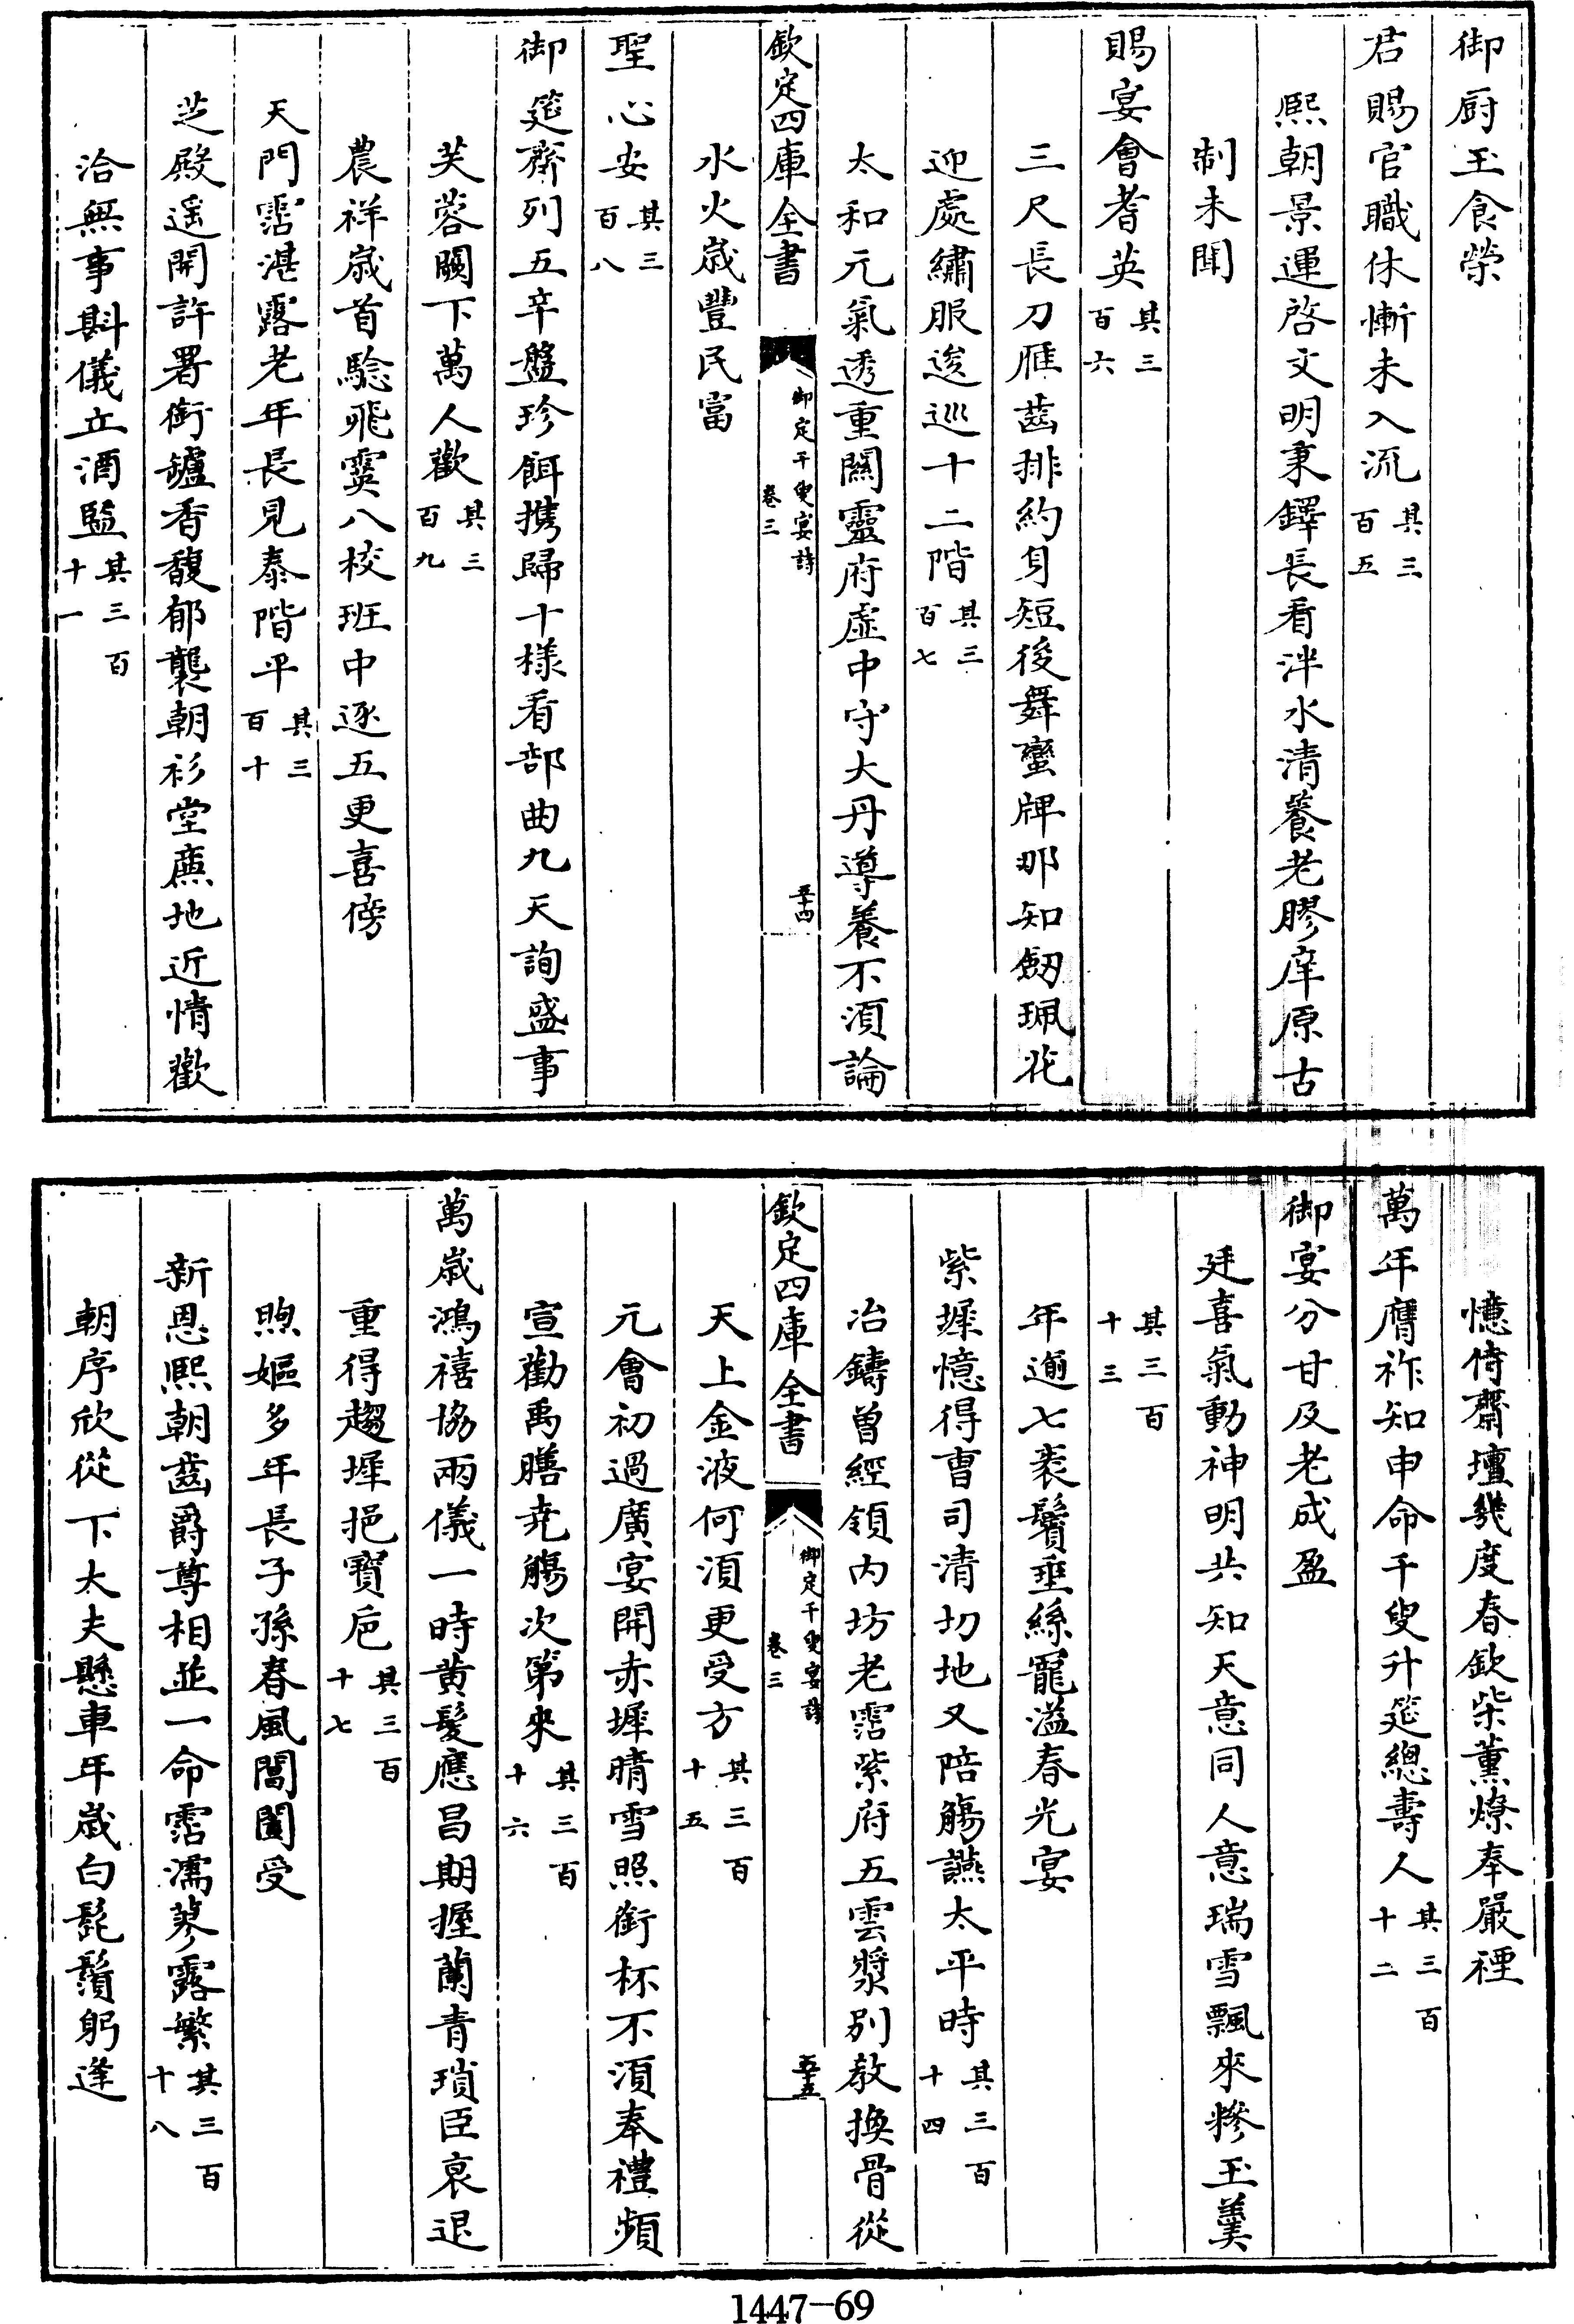 御厨玉食榮
君賜官職休慚未入流其三百五
熙朝景運啓文明秉鐸長看泮水清養老膠庠原古
制未聞
賜宴會耆英其三百六
三尺長刀雁齒排約身短後舞蠻牌那知劒珮花
迎處繡服逡巡十二階其三百七
太和元氣透重關靈府虛中守大丹導養不須論
欽定四庫全書
御定千叟宴詩
卷三
五十四
水火歲豐民富
聖心安其三百八
御筵齊列五辛盤珍餌携歸十樣看部曲九天詢盛事
芙蓉闕下萬人歡其三百九
農祥歲首驗飛霙八校班中逐五更喜傍
天門霑湛露老年長見泰階平其三百十
芝殿遥開許署銜鑪香馥郁襲朝衫堂㢘地近情歡
洽無事斟儀立酒監其三百十一
憶侍齋壇幾度春欽柴薰燎奉嚴禋
萬年膺祚知申命千叟升筵總壽人其三百十二
御宴分甘及老成盈
廷喜氣動神明共知天意同人意瑞雪飄來糝玉羹
其三百十三
年逾七袠鬢垂絲寵溢春光宴
紫墀憶得曹司清切地又陪觴讌太平時其三百十四
冶鑄曽經領内坊老霑紫府五雲漿别教換骨從
欽定四庫全書
御定千叟宴詩
卷三
五十五
天上金液何須更受方其三百十五
元會初過廣宴開赤墀晴雪照銜杯不須奉禮頻
宣勸禹膳尭觴次第來其三百十六
萬歲鴻禧協兩儀一時黄髮應昌期握蘭青瑣臣衰退
重得趨墀挹寶巵其三百十七
煦嫗多年長子孫春風閶闔受
新恩熙朝齒爵尊相並一命霑濡蓼露繁其三百十八
朝序欣從下大夫懸車年歲白髭鬚躬逢
1447-69